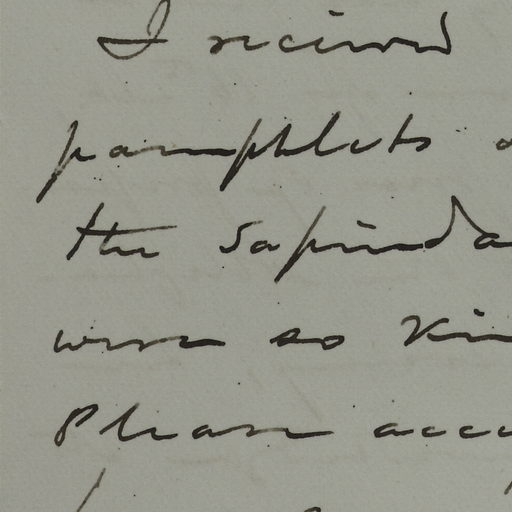 I received
pamphlets
the Sapinda
were so kin
Please acc